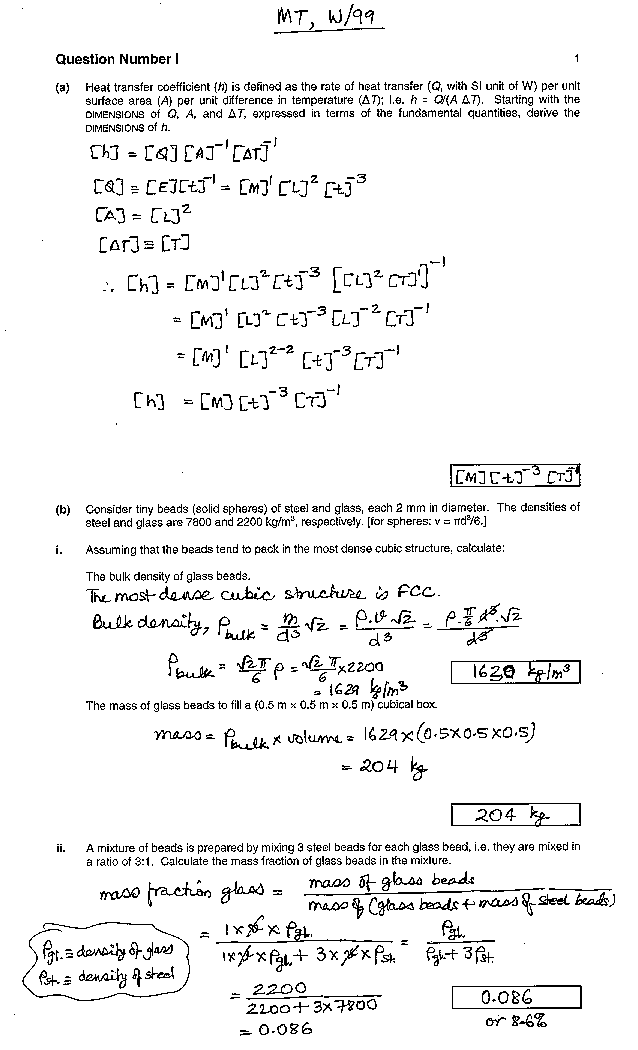 MT, W/99
Question Number I 1
(a) Heat transfer coefficient (h) is defined as the rate of heat transfer (Q, with SI unit of W) per unit
surface area (A) per unit difference in temperature (ΔT); i.e. h = Q/(A ΔT). Starting with the
DIMENSIONS of Q, A, and ΔT, expressed in terms of the fundamental quantities, derive the
DIMENSIONS of h.
[h] = [Q] [A]⁻¹ [ΔT]⁻¹
[Q] ≡ [E][t]⁻¹ = [M]¹ [L]² [t]⁻³
[A] = [L]²
[ΔT] ≡ [T]
∴ [h] = [M]¹[L]²[t]⁻³ [[L]² [T]¹]⁻¹
= [M]¹ [L]² [t]⁻³ [L]⁻² [T]⁻¹
= [M]¹ [L]²⁻² [t]⁻³ [T]⁻¹
[h] = [M] [t]⁻³ [T]⁻¹
[M] [t]⁻³ [T]⁻¹
(b) Consider tiny beads (solid spheres) of steel and glass, each 2 mm in diameter. The densities of
steel and glass are 7800 and 2200 kg/m³, respectively. [for spheres: v = πd³/6.]
i. Assuming that the beads tend to pack in the most dense cubic structure, calculate:
The bulk density of glass beads.
The most dense cubic structure is FCC.
Bulk density, ρbulk = m/d³ √2 = ρ.v √2/d³ = ρ.π/6 d³.√2/d³
ρbulk = √2 π/6 ρ = √2 π/6 × 2200
= 1629 kg/m³
1620 kg/m³
The mass of glass beads to fill a (0.5 m × 0.5 m × 0.5 m) cubical box.
mass = ρbulk × volume = 1629 × (0.5 × 0.5 × 0.5)
= 204 kg
204 kg
ii. A mixture of beads is prepared by mixing 3 steel beads for each glass bead, i.e. they are mixed in
a ratio of 3:1. Calculate the mass fraction of glass beads in the mixture.
mass fraction glass = mass of glass beads / mass of (glass beads + mass of steel beads)
= 1 × v × ρgl. / 1 × v × ρgl + 3 × v × ρst = ρgl. / ρgl + 3ρst.
ρgl. ≡ density of glass
ρst. ≡ density of steel
= 2200 / 2200 + 3 × 7800
= 0.086
0.086
or 8.6%